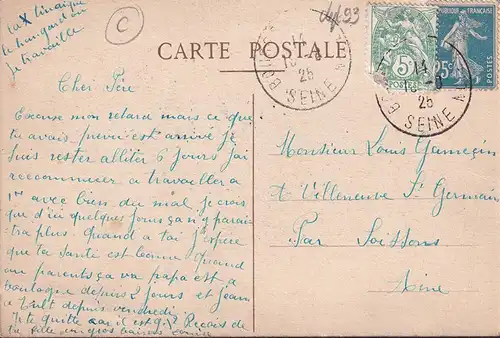 la X linaique
le hangard ou
je travaille
C
93
CARTE POSTALE
14
25
SEINE
RÉPUBLIQUE FRANÇAISE
5c
POSTES
25c
14
25
SEINE
Cher Père
Excuse mon retard mais ce que
tu avais prevu est arrivé je
suis rester alliter 6 jours j'ai
recommencer a travailler a
1ʰ avec bien du mal je crois
que d'ici quelques jours ça n'y parai
tra plus. Quand a tai j'espère
que ta santé est bonne quand
au parents ça va papa est a
boulogne depuis 2 jours et Jean
a Toult depuis vendredi
Je te quitte car il est 9ʰ Recois de
ta fille un gros baiser
Monsieur Louis Gameçin
à Villeneuve St Germain
Par Soissons
Aisne